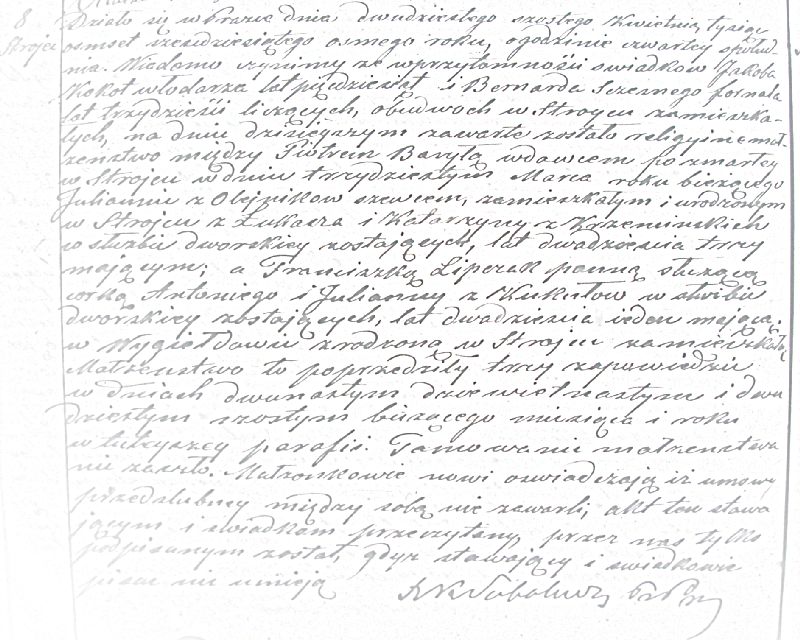 8
Strojec
Działo się w Prazce dnia dwudziestego szóstego Kwietnia, tysiąc
ośmset sześćdziesiątego osmego roku, o godzinie czwartey z połud-
nia. Wiadomo czynimy że w przytomności świadków Jakoba
Kokot włodarza lat pięćdziesiąt i Bernarda Szczesnego fornala
lat trzydzieści liczących, obudwoch w Stroycu zamieszka-
łych, na dniu dzisieyszym zawarte zostało religijne mał-
żeństwo między Piotrem Barytą wdowcem po zmarłey
w Strojcu w dniu trzydziestym Marca roku bieżącego
Juliannie z Olejników szewcem, zamieszkałym i urodzonym
w Strojcu z Łukasza i Katarzyny z Krzeminskich
w służbie dworskiey zostających, lat dwadzieścia trzy
mającym; a Franciszką Lipczak panną służącą
córką Antoniego i Julianny z Kukułow w służbie
dworskiey zostających, lat dwadzieścia ieden mającą,
w Wygiełdowie zrodzoną w Strojcu zamieszkałą
Małżeństwo to poprzedziły trzy zapowiedzi
w dniach dwunastym dziewiętnastym i dwu
dziestym szóstym bieżącego miesiąca i roku
w tuteyszey parafii. Tamowanie małżeństwa
nie zaszło. Małżonkowie nowi oświadczają iż umowy
przedślubney między sobą nie zawarli, akt ten stawa
jącym i świadkom przeczytany, przez nas tylko
podpisanym został, gdyż stawający i świadkowie
pisać nie umieją